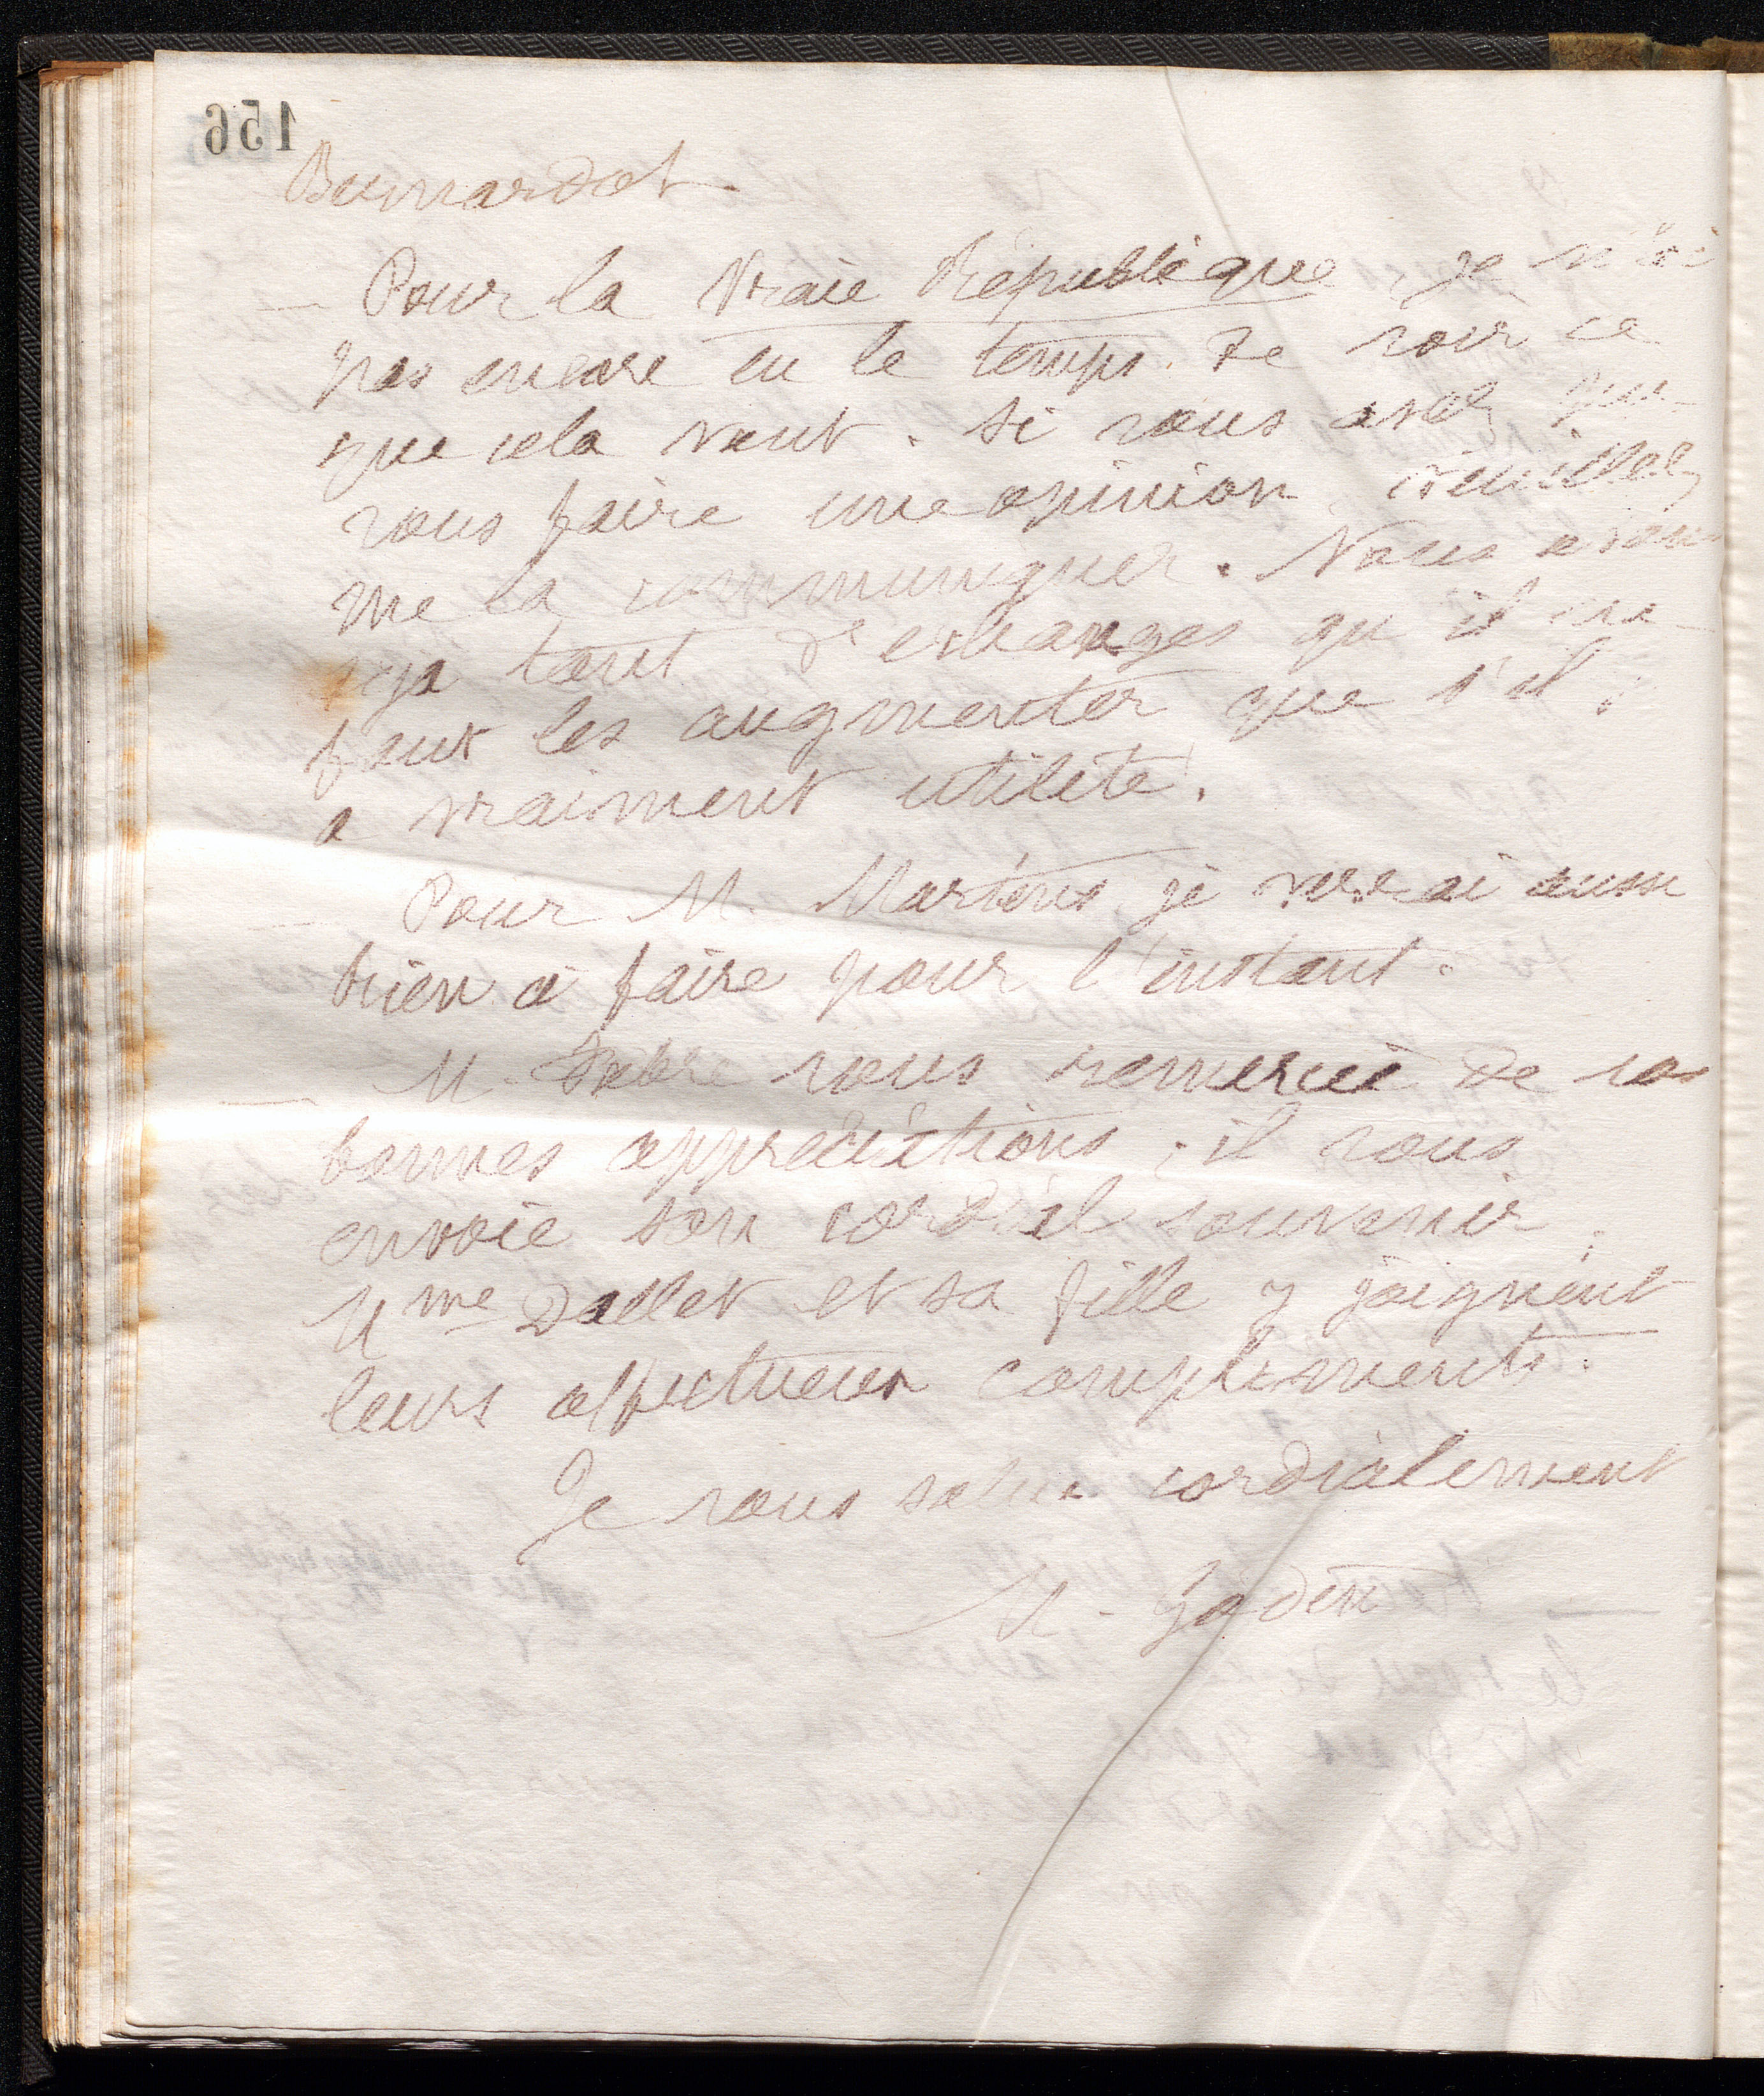 156
Bernardot.
— Pour la Vraie République, je n'ai
pas encore eu le temps de voir ce
que cela vaut. Si vous avez pu
vous faire une opinion veuillez
me la communiquer. Nous avons
déja tant d'échanges qu'il ne
faut les augmenter que s'il y
a vraiment utilité.
— Pour M. Martens je verrai aussi
bien à faire pour l'instant.
— M. Fabre vous remercie de vos
bonnes appréciations ; il vous
envoie son cordial souvenir ;
Mme Dallet et sa fille y joignent
leurs affectueux compliments.
Je vous salue cordialement
M. Godin